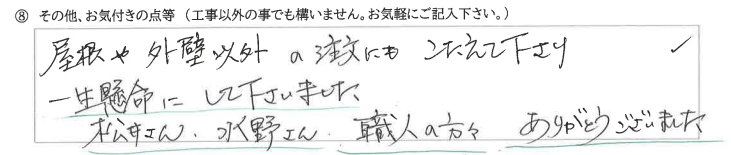 ⑧ その他、お気付きの点等（工事以外の事でも構いません。お気軽にご記入下さい。）
屋根や外壁以外の注文にもこたえて下さり
一生懸命にして下さいました
松井さん、水野さん、職人の方々 ありがとうございました